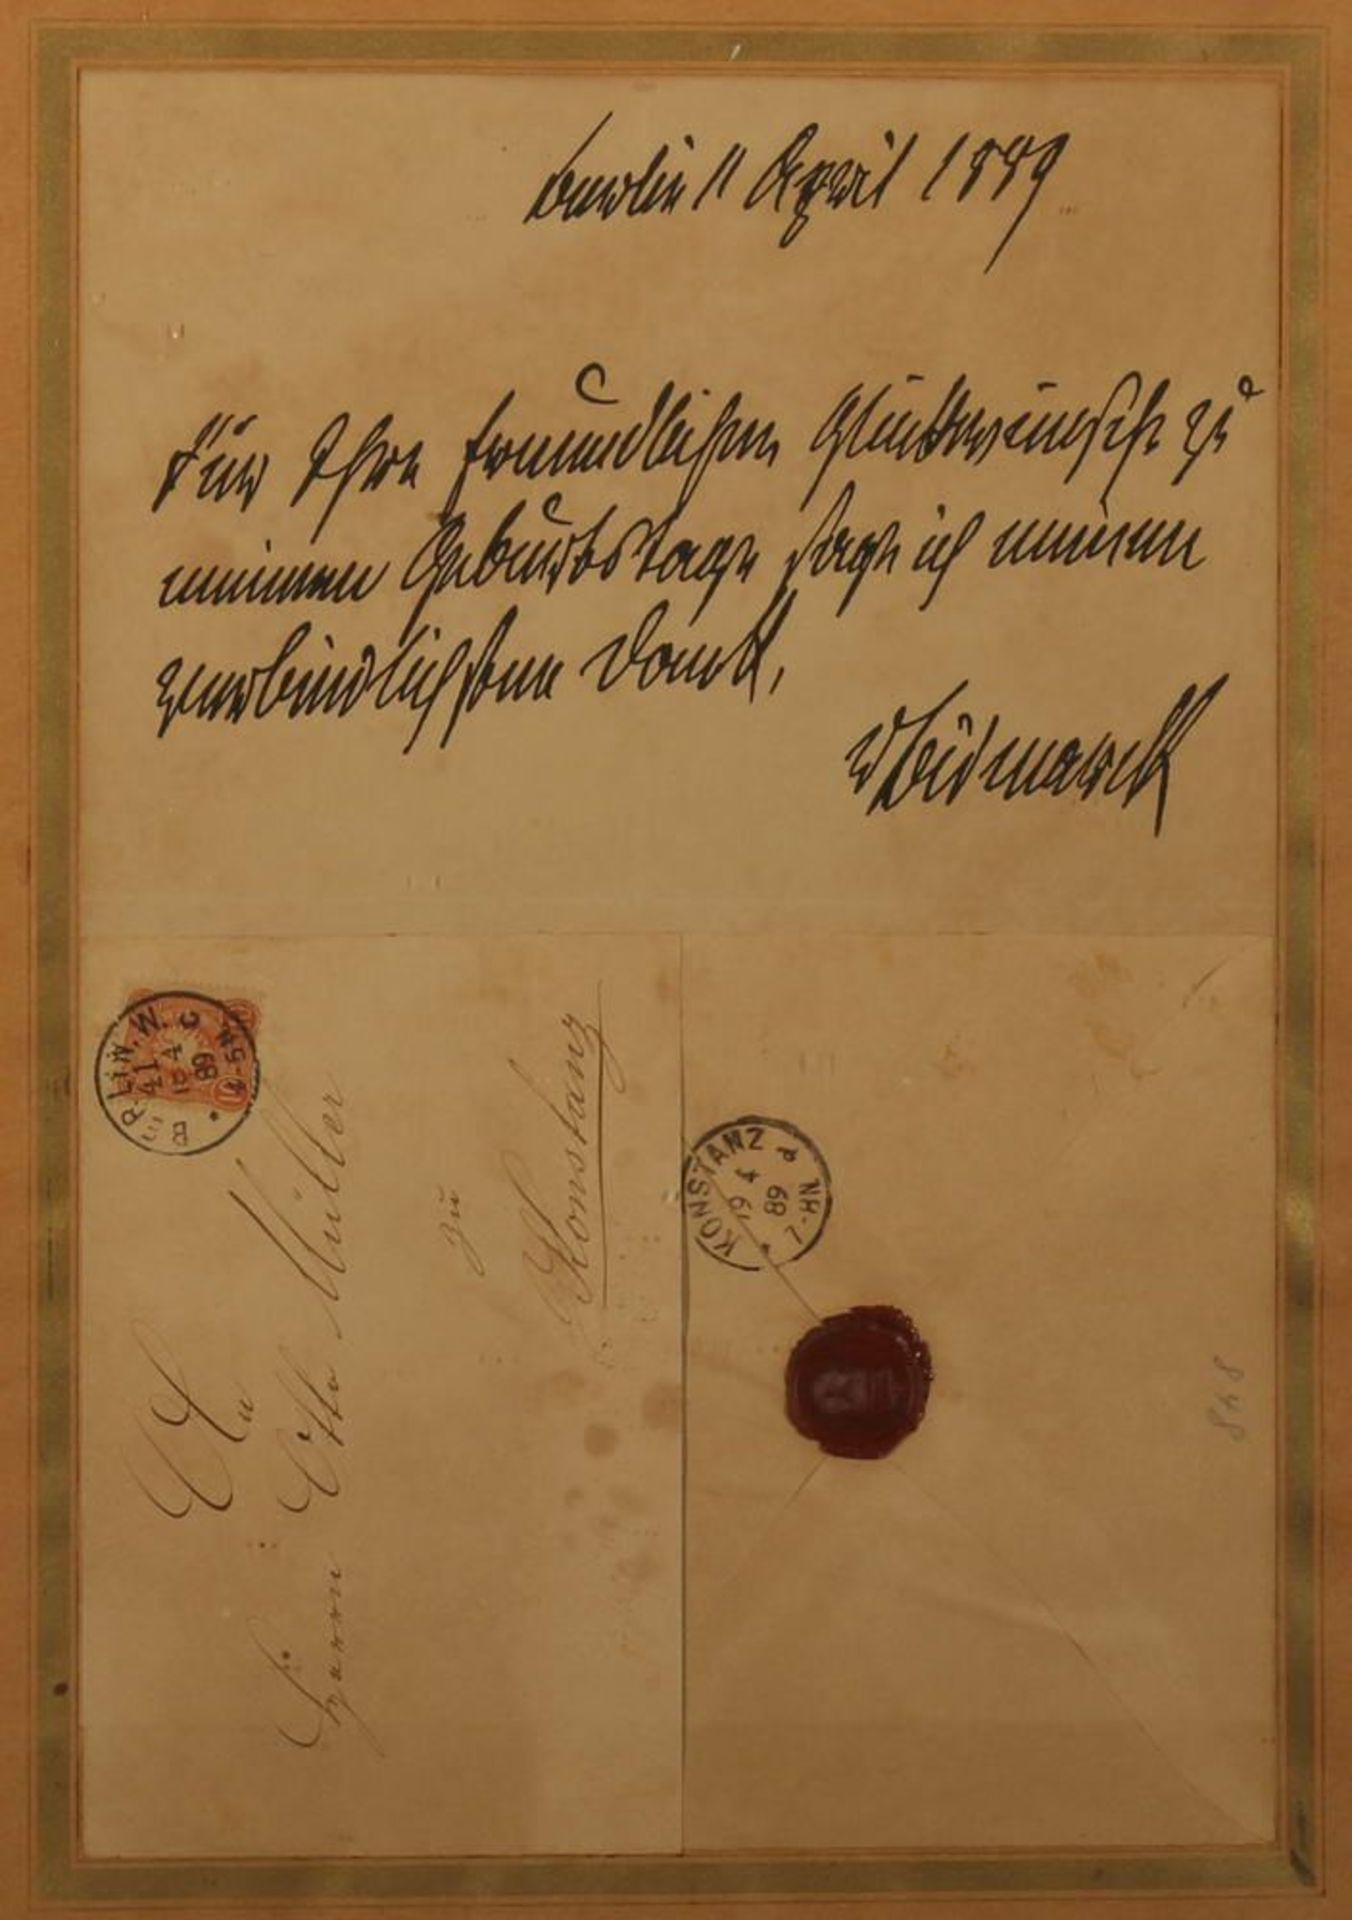 Berlin 11 April 1889
Für Ihre freundlichen Glückwünsche zu
meinem Geburtstage sage ich meinen
verbindlichsten Dank.
v Bismarck
BERLIN. W.
41
4
89
KONSTANZ
19 4
89
7-NN
Herrn Otto Müller
zu
Konstanz
848